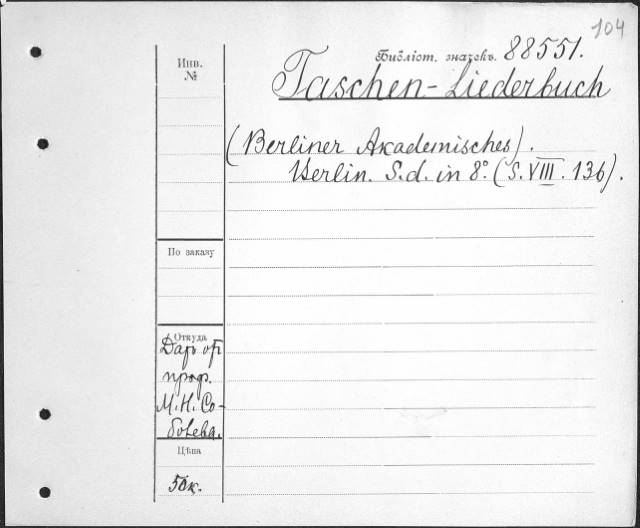 104
Инв.
№
Библіот. значекъ. 88551.
Taschen-Liederbuch
(Berliner Akademisches).
Berlin. S.d. in 8°. (S. VIII. 136).
По заказу
Откуда
Даръ от
проф.
М. Н. Со-
болева.
Цѣна
50к.